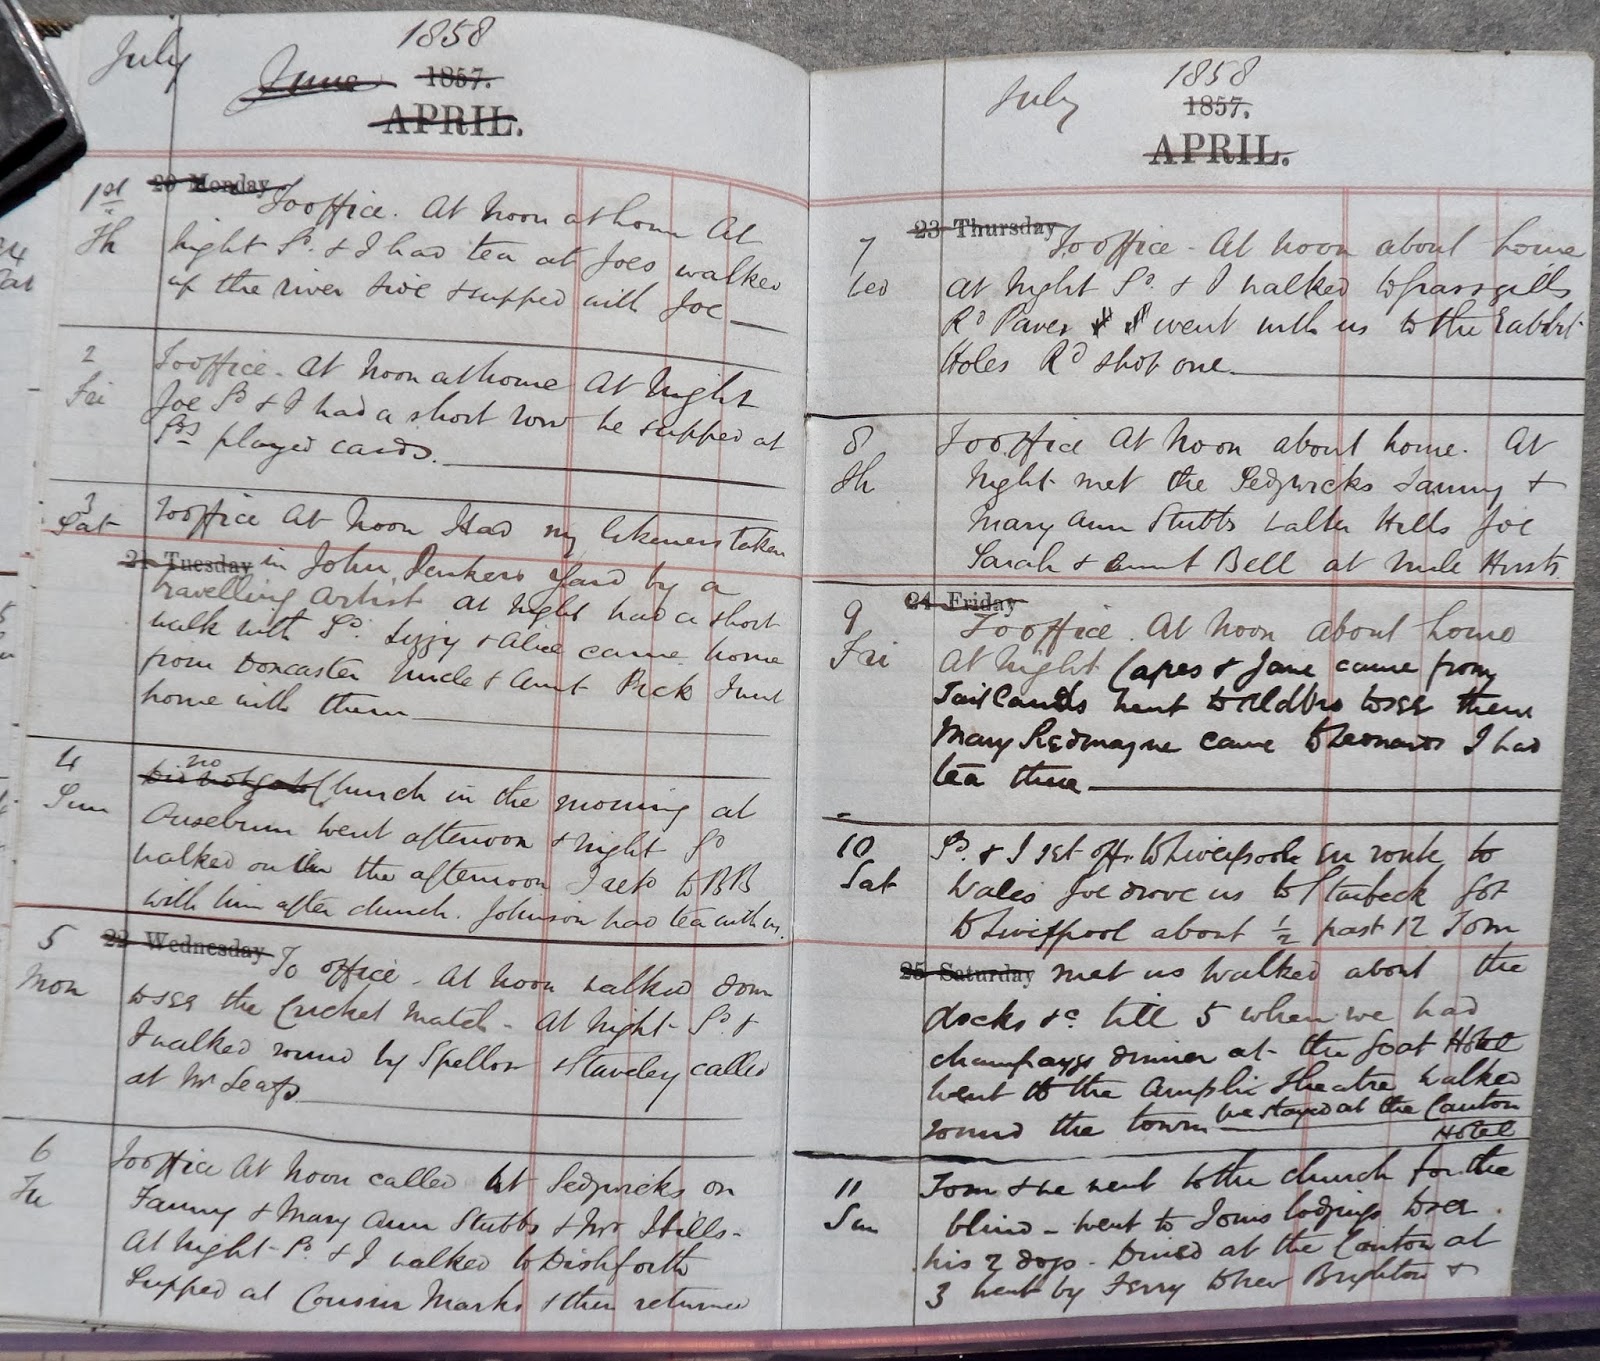 July 1858
June 1857.
APRIL.
1st 20 Monday To office. At Noon at home At
Th night Sd. & I had tea at Joes walked
up the river side & supped with Joe
2 To office - At Noon at home At Night
Fri Joe Sd & I had a short row he supped at
played cards.
3 To office At Noon Had my likeness taken
Sat
21 Tuesday in John Yard by a
travelling Artist. At Night had a short
walk with Sd. Lizzy & Alice came home
from Doncaster Uncle & Aunt Pick
home with them
4 no
Sun Did not go to Church in the morning at
Ouseburn went afternoon & night Sd
walked on in the afternoon to BB
with him after church. Johnson had tea with us.
5 22 Wednesday To office. At Noon walked down
Mon to see the Cricket Match - At Night - Sd. &
I walked round by Spellow & Staveley called
at Mr Leafs
6 To office At Noon called at Sedgwicks on
Tu Fanny & Mary Ann Stubbs & Mr Hills -
At Night - Sd. & I walked to Dishforth
Supped at Cousin Marks & then returned
July 1858
1857.
APRIL.
7 23 Thursday To office - At Noon about home
Wed At Night Sd. & I walked to Grassgills
Rd Paver went with us to the Rabbit
Holes Rd shot one.
8 To office At Noon about home. At
Th Night met the Sedgwicks Fanny &
Mary Ann Stubbs Walter Hills Joe
Sarah & Aunt Bell at Uncle Hirsts
9 24 Friday
To office. At Noon about home
Fri At Night Capes & Jane came from
went to Aldbro to see them
Mary Redmayne came to Leonards I had
tea there
10 Sd. & I set off to Liverpool en route to
Sat Wales Joe drove us to Starbeck got
to Liverpool about ½ past 12 Tom
25 Saturday met us walked about the
docks &c till 5 when we had
champagne dinner at the Goat Hotel
went to the Amphi Theatre walked
round the town we stayed at the Canton
Hotel
11 Tom & we went to the church for the
Sun blind - went to Toms lodgings to see
his 2 dogs - Dined at the Canton at
3 went by Ferry to New Brighton &